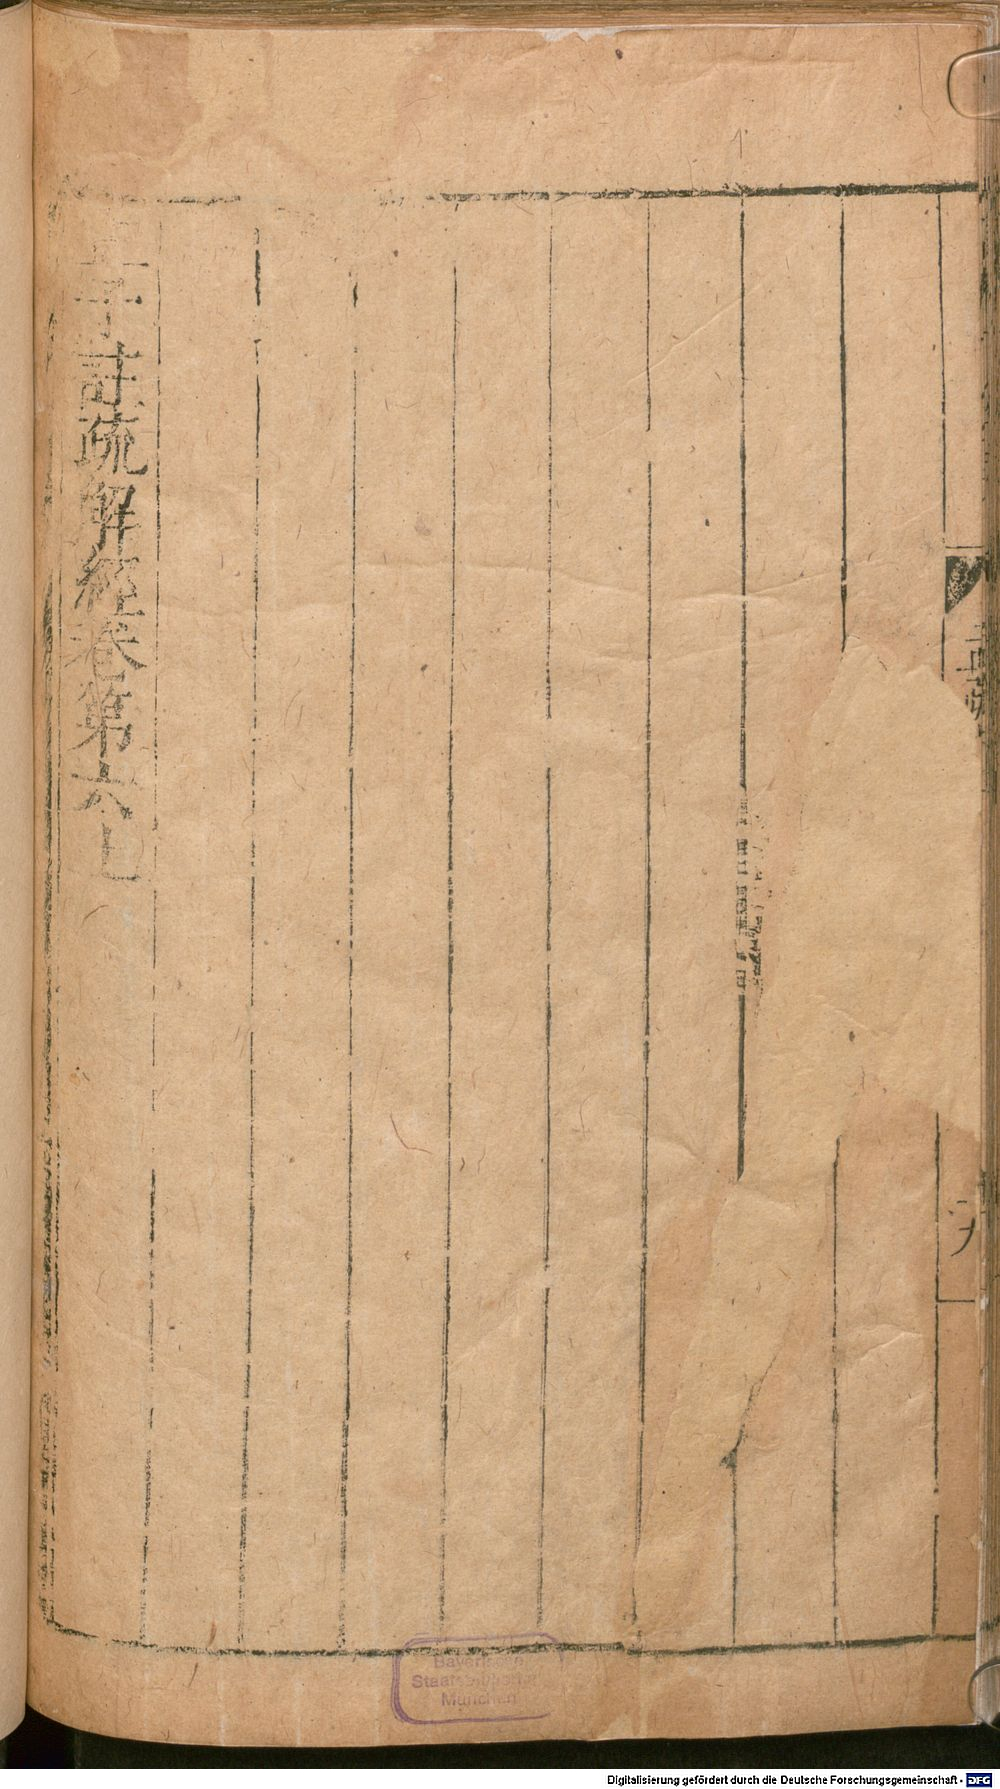 孟子註疏解經卷第六上
Bayerische
Staatsbibliothek
München
Digitalisierung gefördert durch die Deutsche Forschungsgemeinschaft - DFG